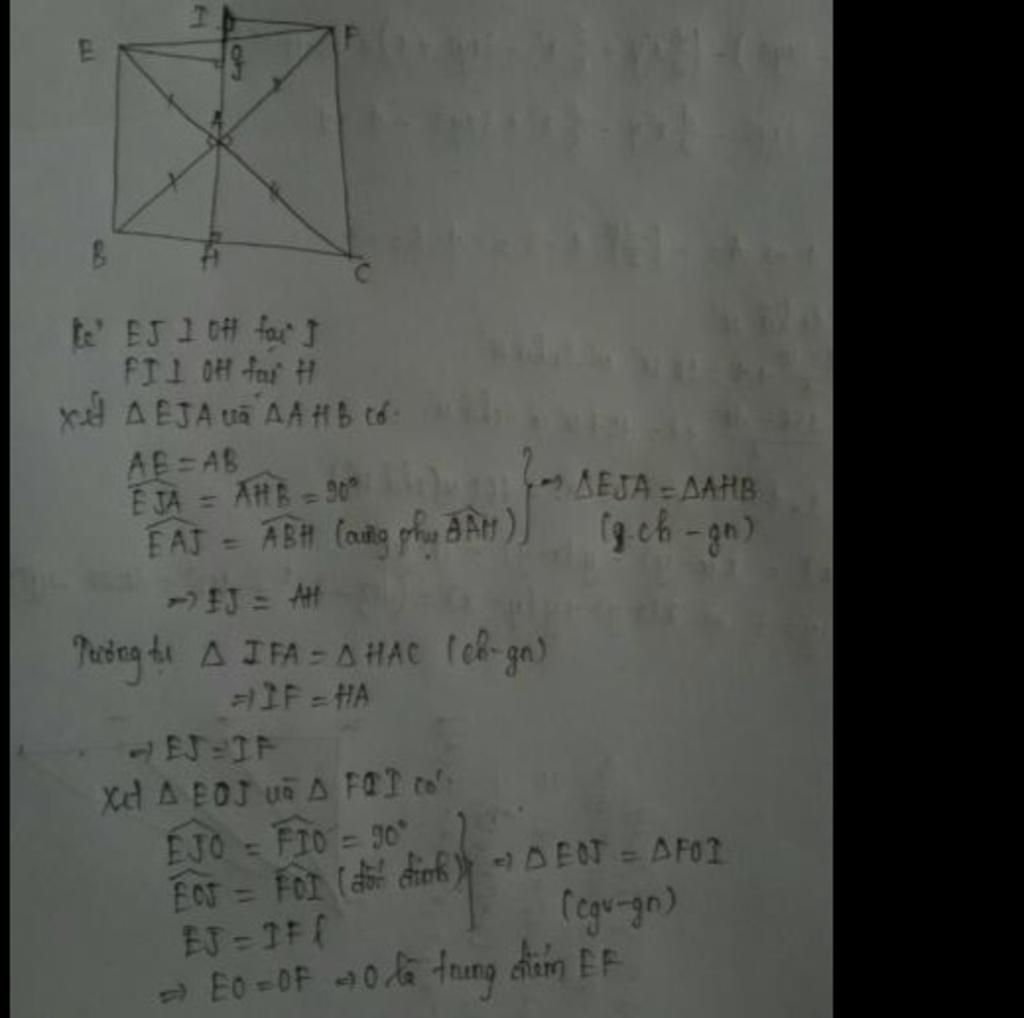 I
F
E
O
J
A
B
H
C
Kẻ EJ ⊥ OH tại J
FI ⊥ OH tại H
Xét Δ EJA và Δ AHB có:
AE = AB
EJA = AHB = 90°
EAJ = ABH (cùng phụ BAH)
⇒ ΔEJA = ΔAHB
(g.ch - gn)
⇒ EJ = AH
Tương tự Δ IFA = Δ HAC (ch-gn)
⇒ IF = HA
⇒ EJ = IF
Xét Δ EOJ và Δ FOI có:
EJO = FIO = 90°
EOJ = FOI (đối đỉnh)
EJ = IF
⇒ Δ EOJ = Δ FOI
(cgv-gn)
⇒ EO = OF ⇒ O là trung điểm EF